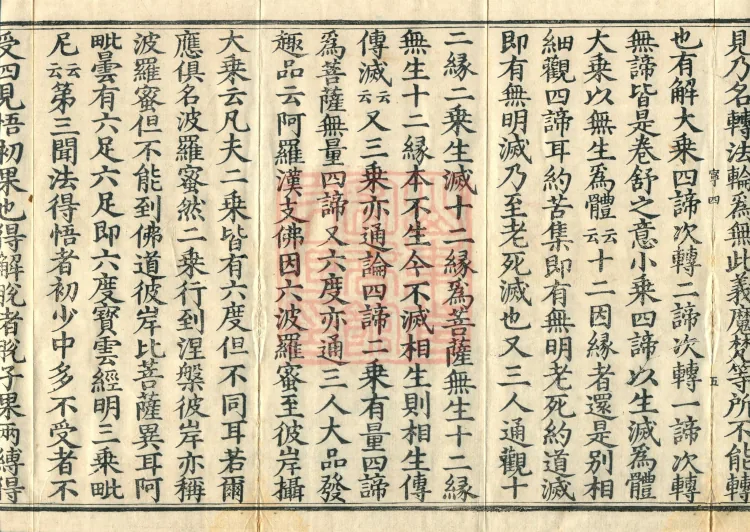 見乃名轉法輪為無此義魔梵等所不能轉
寧四
五
也有解大乗四諦次轉二諦次轉一諦次轉
無諦皆是卷舒之意小乗四諦以生滅為體
大乗以無生為體云云十二因緣者還是別相
細觀四諦耳約苦集即有無明老死約道滅
即有無明滅乃至老死滅也又三人通觀十
二緣二乗生滅十二緣為菩薩無生十二緣
無生十二緣本不生今不滅相生則相生傳
傳滅云云又三乗亦通論四諦二乗有量四諦
為菩薩無量四諦又六度亦通三人大品發
趣品云阿羅漢支佛因六波羅蜜至彼岸攝
大乗云凡夫二乗皆有六度但不同耳若爾
應俱名波羅蜜然二乗行到涅槃彼岸亦稱
波羅蜜但不能到佛道彼岸比菩薩異耳阿
毗曇有六足六足即六度寶雲經明三乗毗
尼云云第三聞法得悟者初少中多不受者不
受四見悟初果也得解脫者脫子果兩縛得